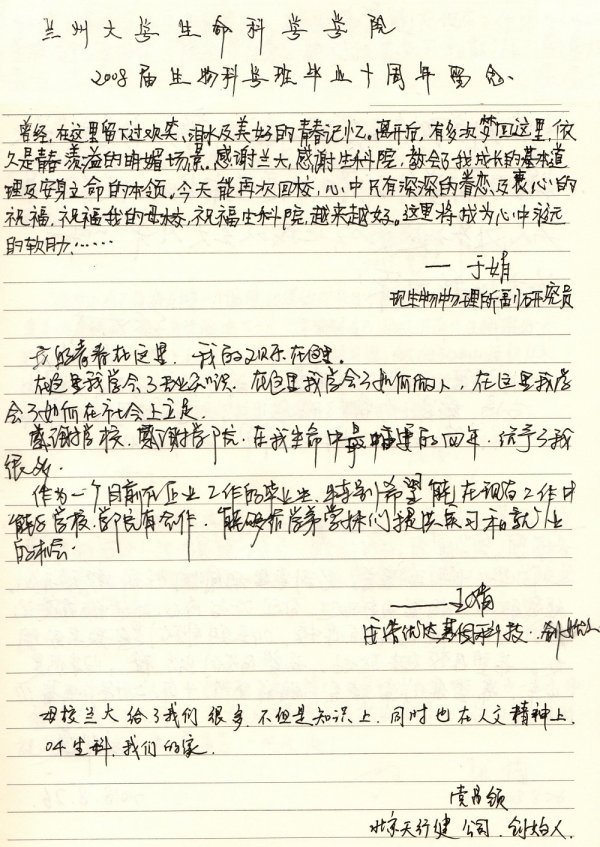 兰州大学生命科学学院
2008届生物科学班毕业十周年留念.
曾经,在这里留下过欢笑、泪水及美好的青春记忆。离开后,有多少次梦回这里,依
久是青春洋溢的明媚场景。感谢兰大,感谢生科院,教会了我成长的基本道
理及安身立命的本领。今天能再次回校,心中只有深深的眷恋及衷心的
祝福,祝福我的母校,祝福生科院,越来越好。这里将成为心中永远
的软肋……
— 于娟
现生物物理所副研究员
我的青春在这里,我的欢乐在这里。
在这里我学会了专业知识,在这里我学会了如何做人,在这里我学
会了如何在社会上立足.
感谢学校,感谢学院,在我生命中最幸运的四年,给予了我
很多.
作为一个目前在企业工作的毕业生,特别希望能在现有工作中
能与学校、学院有合作,能够给学弟学妹们提供实习和就业
的机会.
——王娟
优达基因科技.创始人
母校兰大给了我们很多,不但是知识上,同时也在人文精神上.
04生科,我们的家.
党昌领
北京天行健公司.创始人.